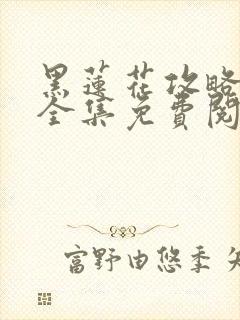 黑莲花攻略
全集免費閱
富野由悠季